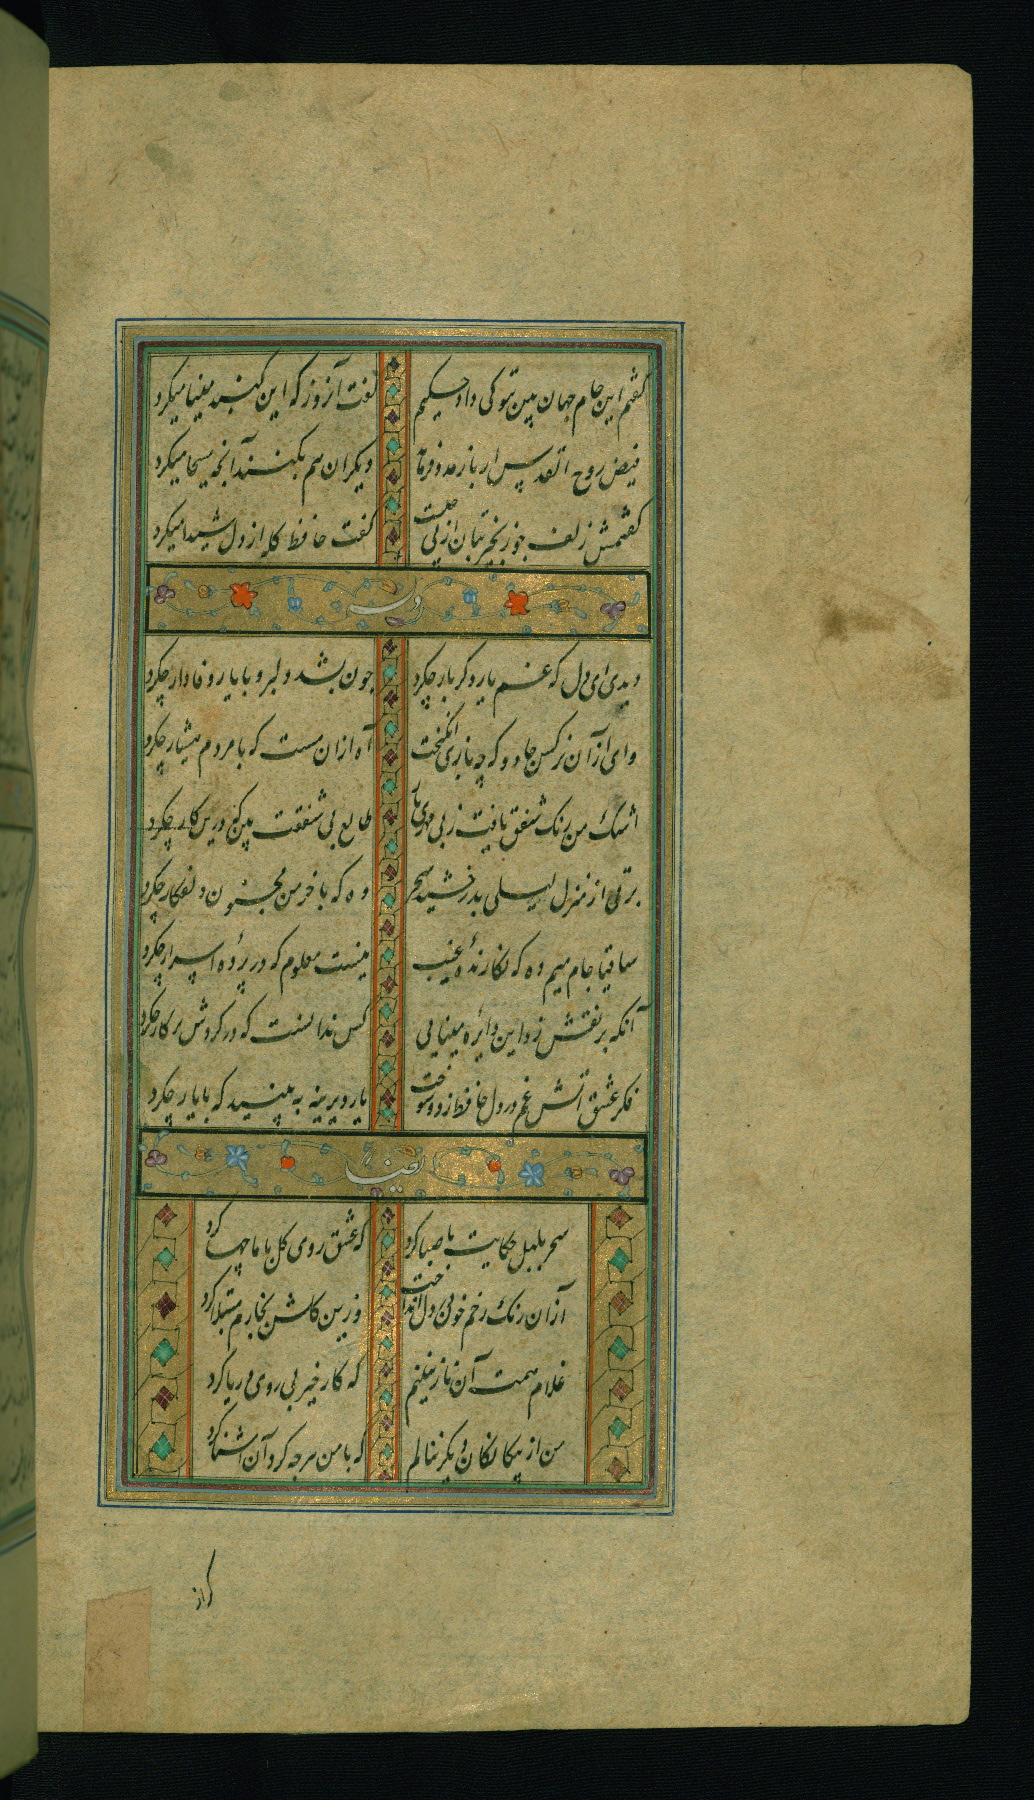 گفتم این جام جهان بین بتو کی داد حکیم گفت آنروز که این گنبد مینا میکرد
فیض روح القدس ار باز مدد فرماید دیگران هم بکنند آنچه مسیحا میکرد
گفتمش زلف چو زنجیر بتان از پی چیست گفت حافظ گله از دل شیدا میکرد
دیدی ای دل که غم یار دگر بار چکرد چون بشد دلبر و با یار وفادار چکرد
وای از آن نرگس جادو که چه بازی انگیخت آه ازان مست که با مردم هشیار چکرد
اشک من رنگ شفق یافت ز بی مهری یار طالع بی شفقت بین که درین کار چکرد
برقی از منزل لیلی بدرخشید سحر وه که با خرمن مجنون دلفکار چکرد
ساقیا جام میم ده که نگارنده غیب نیست معلوم که در پرده اسرار چکرد
آنکه بر نقش زد این دایره مینایی کس ندانست که در گردش پرگار چکرد
فکر عشق آتش غم در دل حافظ زد و سوخت یار دیرینه ببینید که با یار چکرد
ایضا
سحر بلبل حکایت با صبا کرد که عشق روی گل با ما چها کرد
از آن رنگ رخم خون در دل انداخت وزین گلشن بخارم مبتلا کرد
غلام همت آن نازنینم که کار خیر بی روی و ریا کرد
من از بیگانگان دیگر ننالم که با من هرچه کرد آن آشنا کرد
گر از